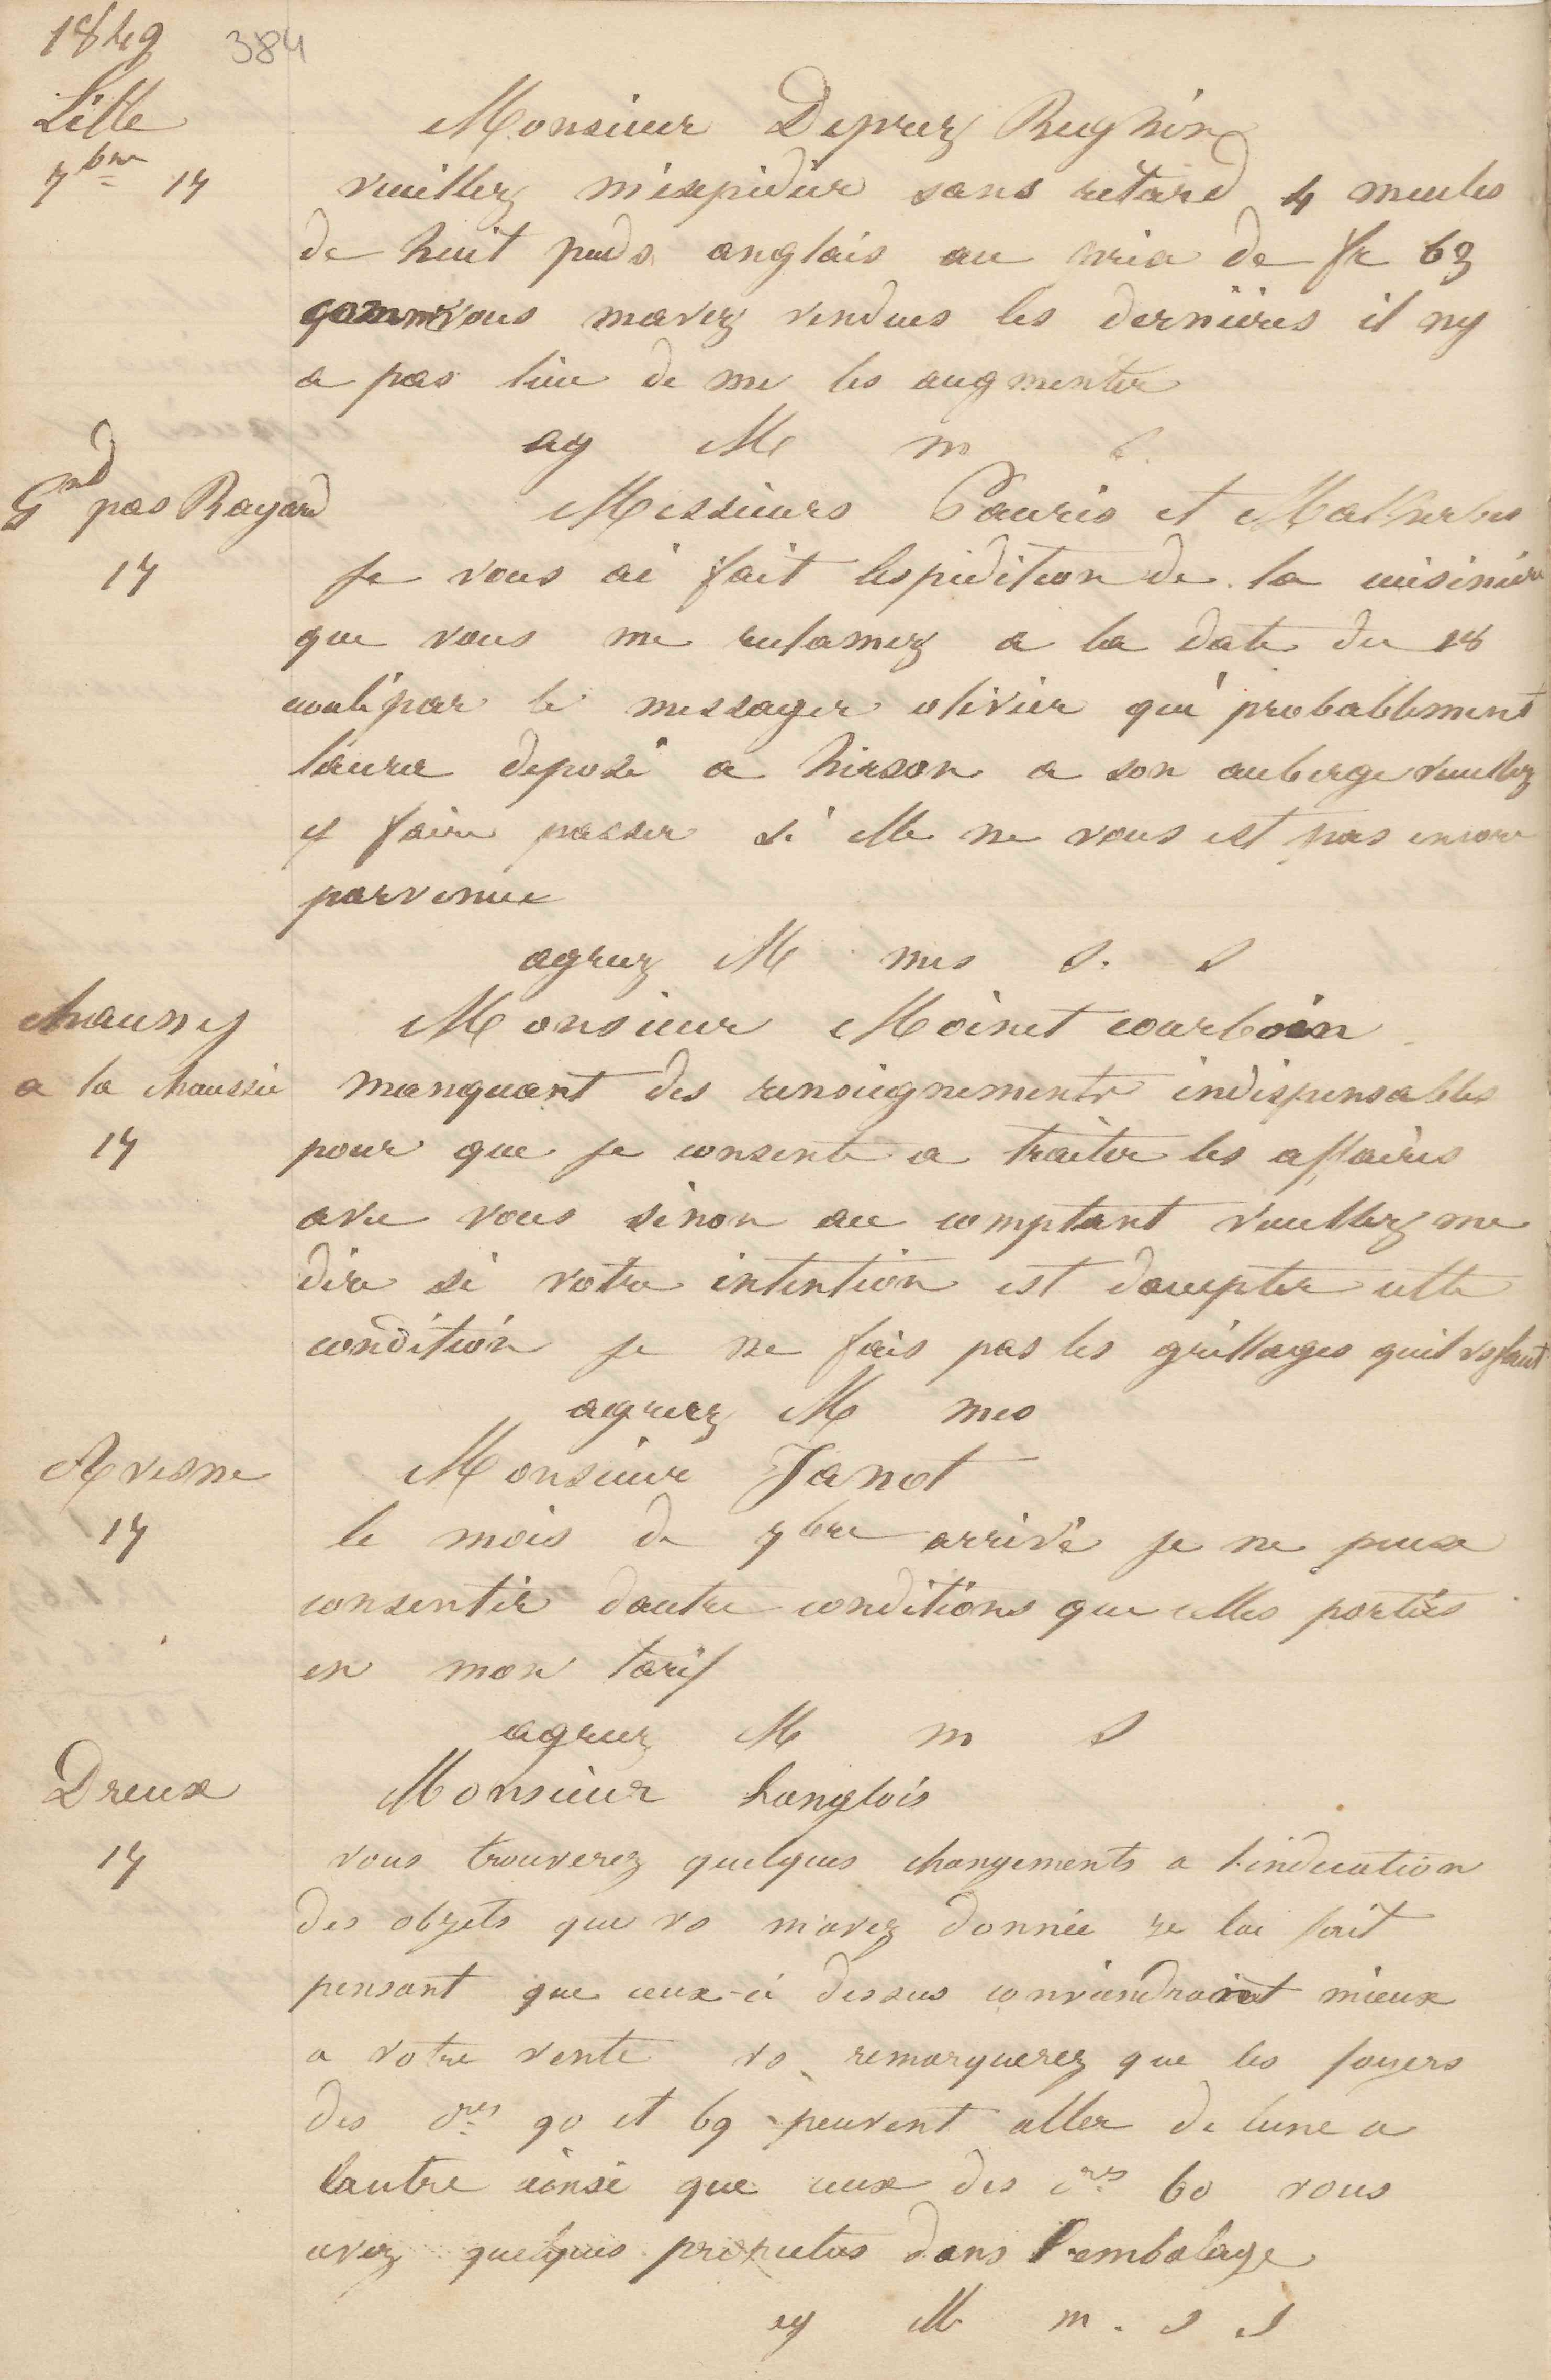 1849 384
Lille
7bre 17
Monsieur Deprez Reghin
veuillez m'expedier sans retard 4 meules
de huit pieds anglais au prix de fr 63
comme vous mavez vendues les dernières il ny
a pas lieu de me les augmenter
ag M m
Gnd pas Bayard
17
Messieurs Pauris et Malherbes
Je vous ai fait lespedition de la cuisinière
que vous me reclamez a la date du 18
coulé par le messager olivier qui probablement
laura deposé a hirson a son auberge veuillez
y faire passer si elle ne vous est pas encore
parvenue
agreez M mes S. S
chauny
a la chaussée
17
Monsieur Moinet courboin
manquant des renseignements indispensables
pour que je consente a traiter les affaires
avec vous sinon au comptant veuillez me
dire si votre intention est daccepter cette
condition je ne fais pas les grillages quil vs faut
agreez M mes
Avesne
17
Monsieur Janot
le mois de 7bre arrivé je ne peux
consentir dautre conditions que celles portées
en mon tarif
agreez M m S
Dreux
17
Monsieur Langlois
vous trouverez quelques changements a l'indication
des objets que vs m'avez donnée je lai fait
pensant que ceux-ci dessus conviendraient mieux
a votre vente vs remarquerez que les foyers
des 90 et 69 peuvent aller de lune a
lautre ainsi que ceux des 60 vous
avez quelques dans l'embalage
ag M m. S S